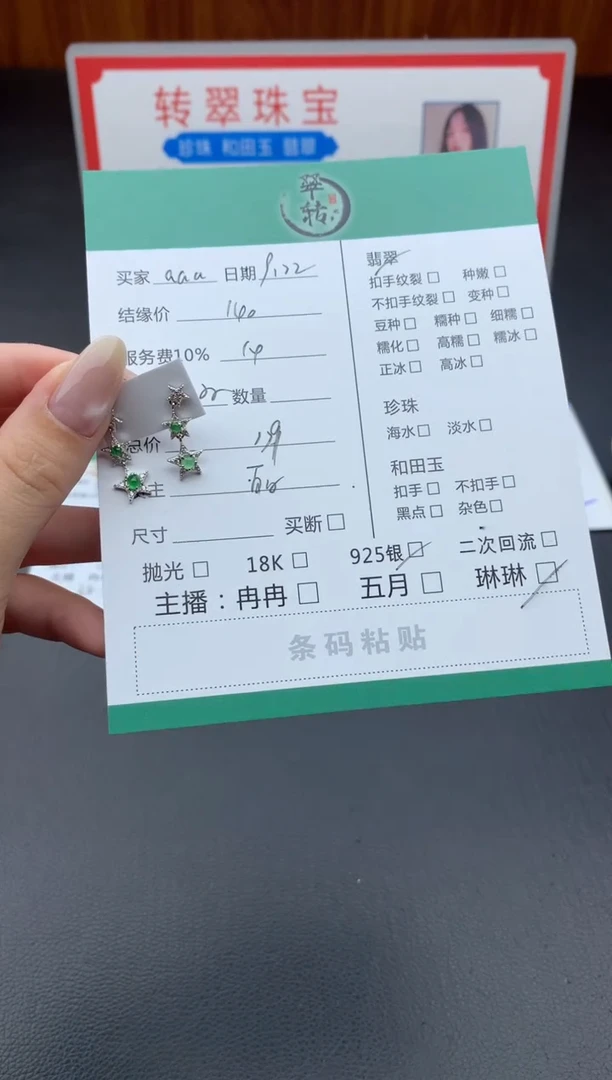 转翠珠宝
珍珠 和田玉 翡翠
翠转
买家 aaa 日期
结缘价 140
服务费10% 14
数量
总价
主
尺寸 买断
翡翠
扣手纹裂 种嫩
不扣手纹裂 变种
豆种 糯种 细糯
糯化 高糯 糯冰
正冰 高冰
珍珠
海水 淡水
和田玉
扣手 不扣手
黑点 杂色
抛光 18K 925银 二次回流
主播：冉冉 五月 琳琳
条码粘贴